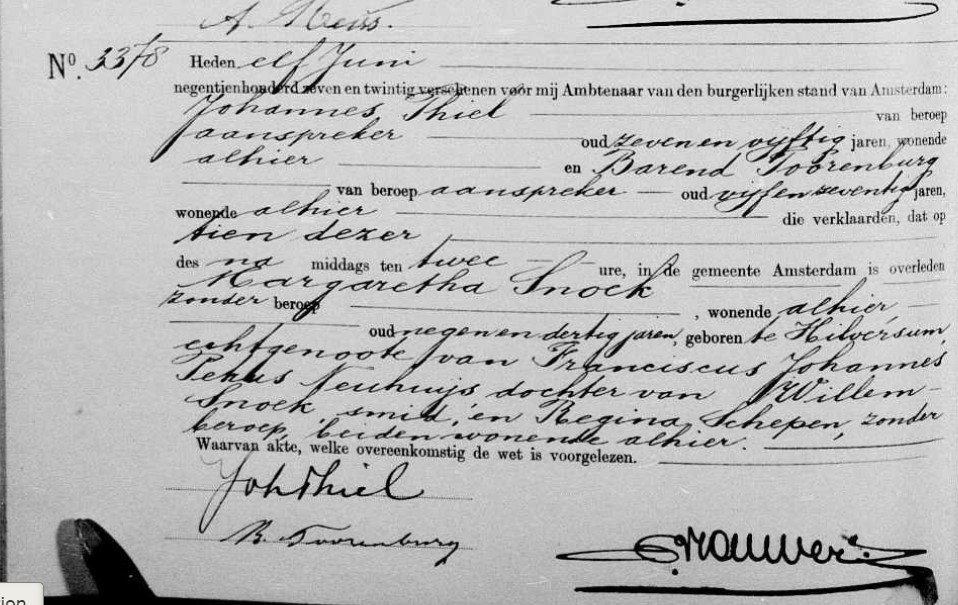 A. Meiss.
No. 3378 Heden elf Juni
negentienhonderd zeven en twintig verschenen voor mij Ambtenaar van den burgerlijken stand van Amsterdam:
Johannes Thiel van beroep
aanspreker oud zeven en vijftig jaren, wonende
alhier en Barend Toorenburg
van beroep aanspreker oud vijf en zeventig jaren,
wonende alhier die verklaarden, dat op
tien dezer
des na middags ten twee ure, in de gemeente Amsterdam is overleden
Margaretha Snoek
zonder beroep, wonende alhier,
oud negen en dertig jaren, geboren te Hilversum,
echtgenoote van Franciscus Johannes
Petrus Neuhuijs dochter van Willem
Snoek, smid, en Regina Schepen, zonder
beroep, beiden wonende alhier.
Waarvan akte, welke overeenkomstig de wet is voorgelezen.
Joh Thiel
B. Toorenburg